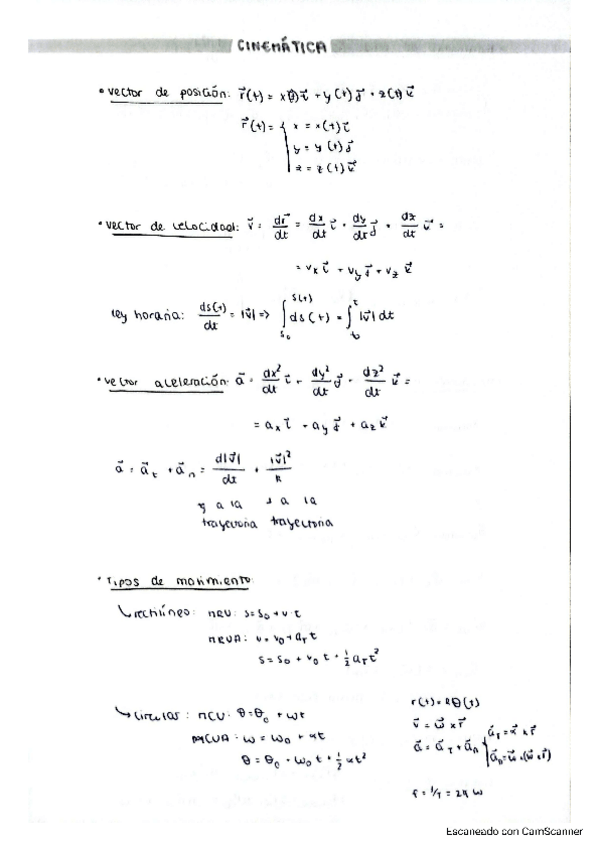 CINEMÁTICA
• vector de posición: r⃗(t) = x(t)i⃗ + y(t)j⃗ + z(t)k⃗
r⃗(t) = { x = x(t)i⃗
y = y(t)j⃗
z = z(t)k⃗
• vector de velocidad: v⃗ = dr⃗/dt = dx/dt i⃗ + dy/dt j⃗ + dz/dt k⃗ =
= vx i⃗ + vy j⃗ + vz k⃗
ley horaria: ds(t)/dt = |v⃗| => ∫_{s0}^{s(t)} ds(t) = ∫_{t0}^{t} |v⃗| dt
• vector aceleración: a⃗ = dx²/dt i⃗ + dy²/dt j⃗ + dz²/dt k⃗ =
= ax i⃗ + ay j⃗ + az k⃗
a⃗ = a⃗t + a⃗n = d|v⃗|/dt + |v⃗|²/R
a la a la
trayectoria trayectoria
• Tipos de movimiento:
↳ rectilíneo: MRU: s = s0 + v·t
MRUA: v = v0 + aT t
s = s0 + v0 t + 1/2 aT t²
↳ circular: MCU: θ = θ0 + ωt
MCUA: ω = ω0 + αt
θ = θ0 + ω0 t + 1/2 αt²
r(t) = Rθ(t)
v⃗ = ω⃗ x r⃗
a⃗ = a⃗T + a⃗n { a⃗T = α⃗ x r⃗
a⃗n = ω⃗ x (ω⃗ x r⃗)
f = 1/T = 2π ω
Escaneado con CamScanner